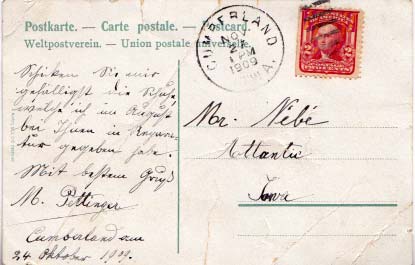 Postkarte. — Carte postale. — Postcard.
Weltpostverein. – Union postale universelle.
CUMBERLAND
NOV
1 PM
1909
A.
Schiken Sie mir
gefälligst die Schuhe
welche ich im August
bei Ihnen in Repara-
tur gegeben habe.
Mit bestem Gruß
M. Pettinger
Cumberland am
24 Oktober 1909.
Mr. Nebé
Atlantic
Iowa